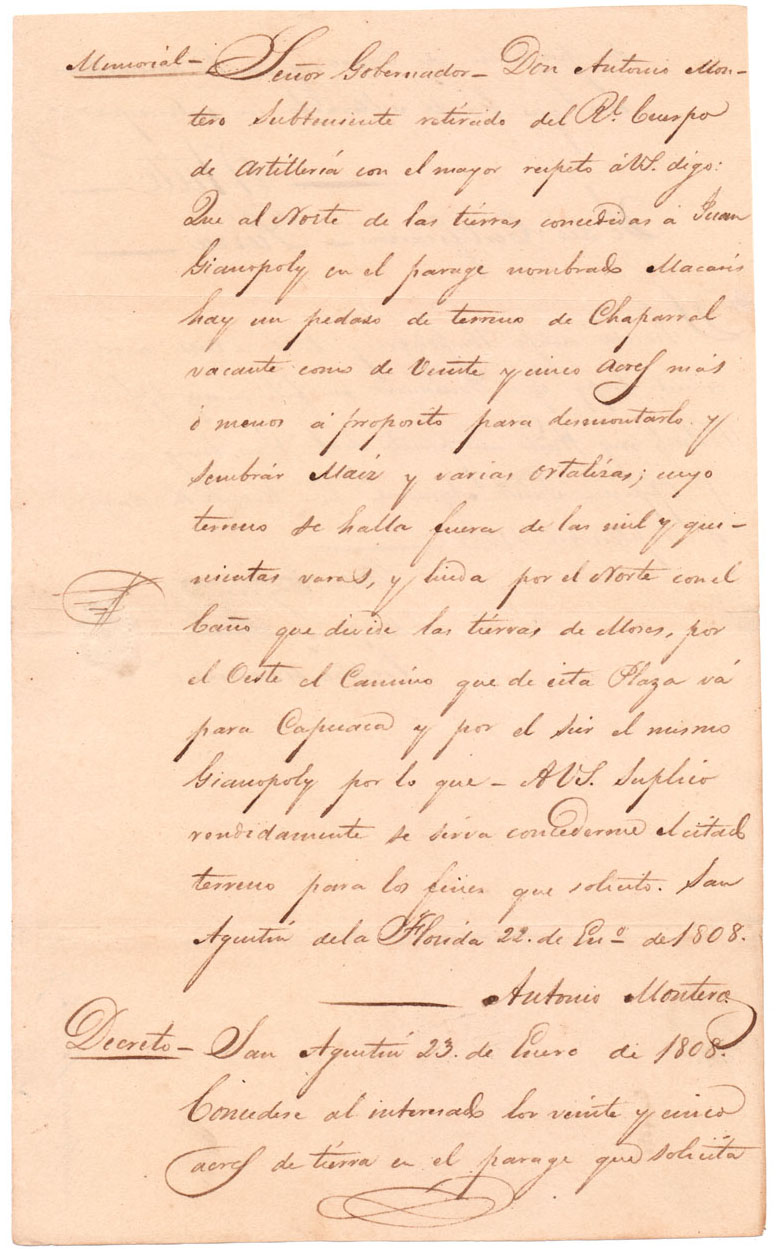 Memorial – Señor Gobernador – Don Antonio Mon-
tero Subteniente retirado del Rl. Cuerpo
de Artilleria con el mayor respeto á VS. digo:
Que al Norte de las tiérras concedidas á Juan
Gianopoly en el parage nombrado Macaris
hay un pedaso de terreno de Chaparral
vacante como de Veinte y cinco Acres más
ó menos á proposito para desmontarlo y
sembrár Maíz y varias ortalizas; cuyo
terreno se halla fuera de las mil y qui-
nientas varas, y linda por el Norte con el
Caño que divide las tiérras de Moses, por
el Oeste el Camino que de esta Plaza vá
para Capuaca y por el Sur el mismo
Gianopoly por lo que – A VS. Suplico
rendidamente se sirva concederme el citado
terreno para los fines que solicito. San
Agustin de la Florida 22. de Eno. de 1808.
Antonio Montero
Decreto – San Agustin 23. de Enero de 1808.
Concedese al interesado los veinte y cinco
acres de tiérra en el parage que solicita